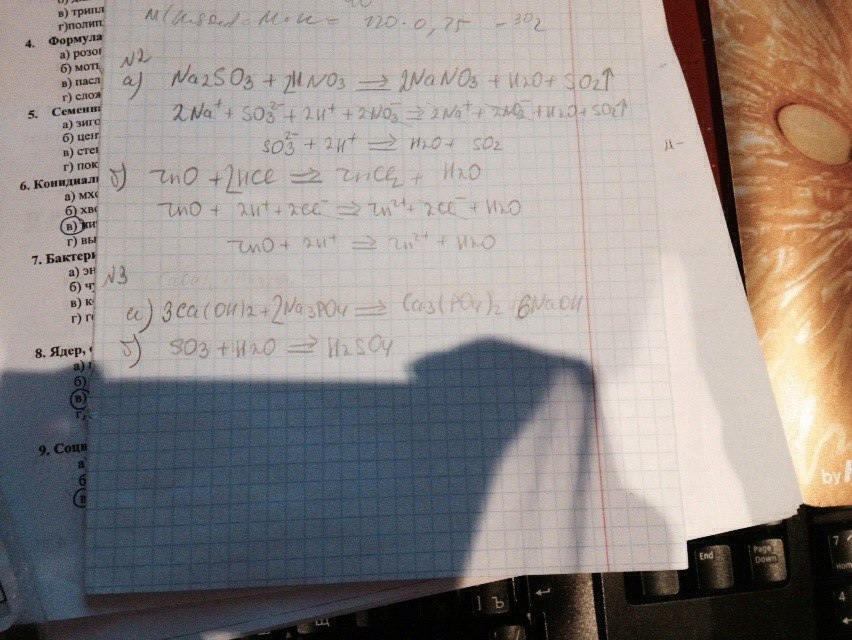 в) трипл
г) полип
4. Формула
а) розо
б) моты
в) пасл
г) слож
5. Семенн
а) зиго
б) цен
в) сте
г) пок
6. Конидиаль
а) мхо
б) хво
в)
г) вы
7. Бактери
а) эн
б) ч
в) к
г) г
8. Ядер,
а)
б)
в)
г)
9. Соцв
а
б
в
= 120·0,25 = 30г
№2
а) Na2SO3 + 2HNO3 ⇒ 2NaNO3 + H2O + SO2↑
2Na⁺ + SO3²⁻ + 2H⁺ + 2NO3⁻ ⇒ 2Na⁺ + 2NO3⁻ + H2O + SO2↑
SO3²⁻ + 2H⁺ ⇒ H2O + SO2
б) ZnO + 2HCl ⇒ ZnCl2 + H2O
ZnO + 2H⁺ + 2Cl⁻ ⇒ Zn²⁺ + 2Cl⁻ + H2O
ZnO + 2H⁺ ⇒ Zn²⁺ + H2O
№3
а) 3Ca(OH)2 + 2Na3PO4 ⇒ Ca3(PO4)2 + 6NaOH
б) SO3 + H2O ⇒ H2SO4
by
End
Page Down
7 Home
4
Ъ